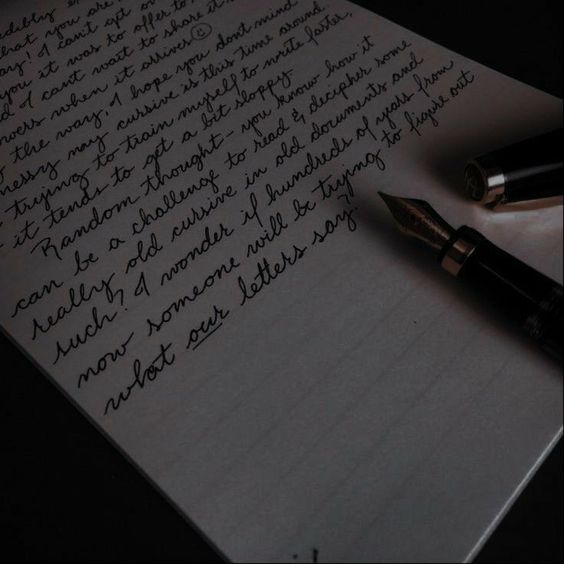 that you are
I can't get o
you it was to offer to
d I can't wait to share it
when it arrives ☺
the way, I hope you don't mind
messy my cursive is this time around.
trying to train myself to write faster,
- it tends to get a bit sloppy.
Random thought - you know how it
can be a challenge to read & decipher some
really old cursive in old documents and
such? I wonder if hundreds of years from
now someone will be trying to figure out
what our letters say?